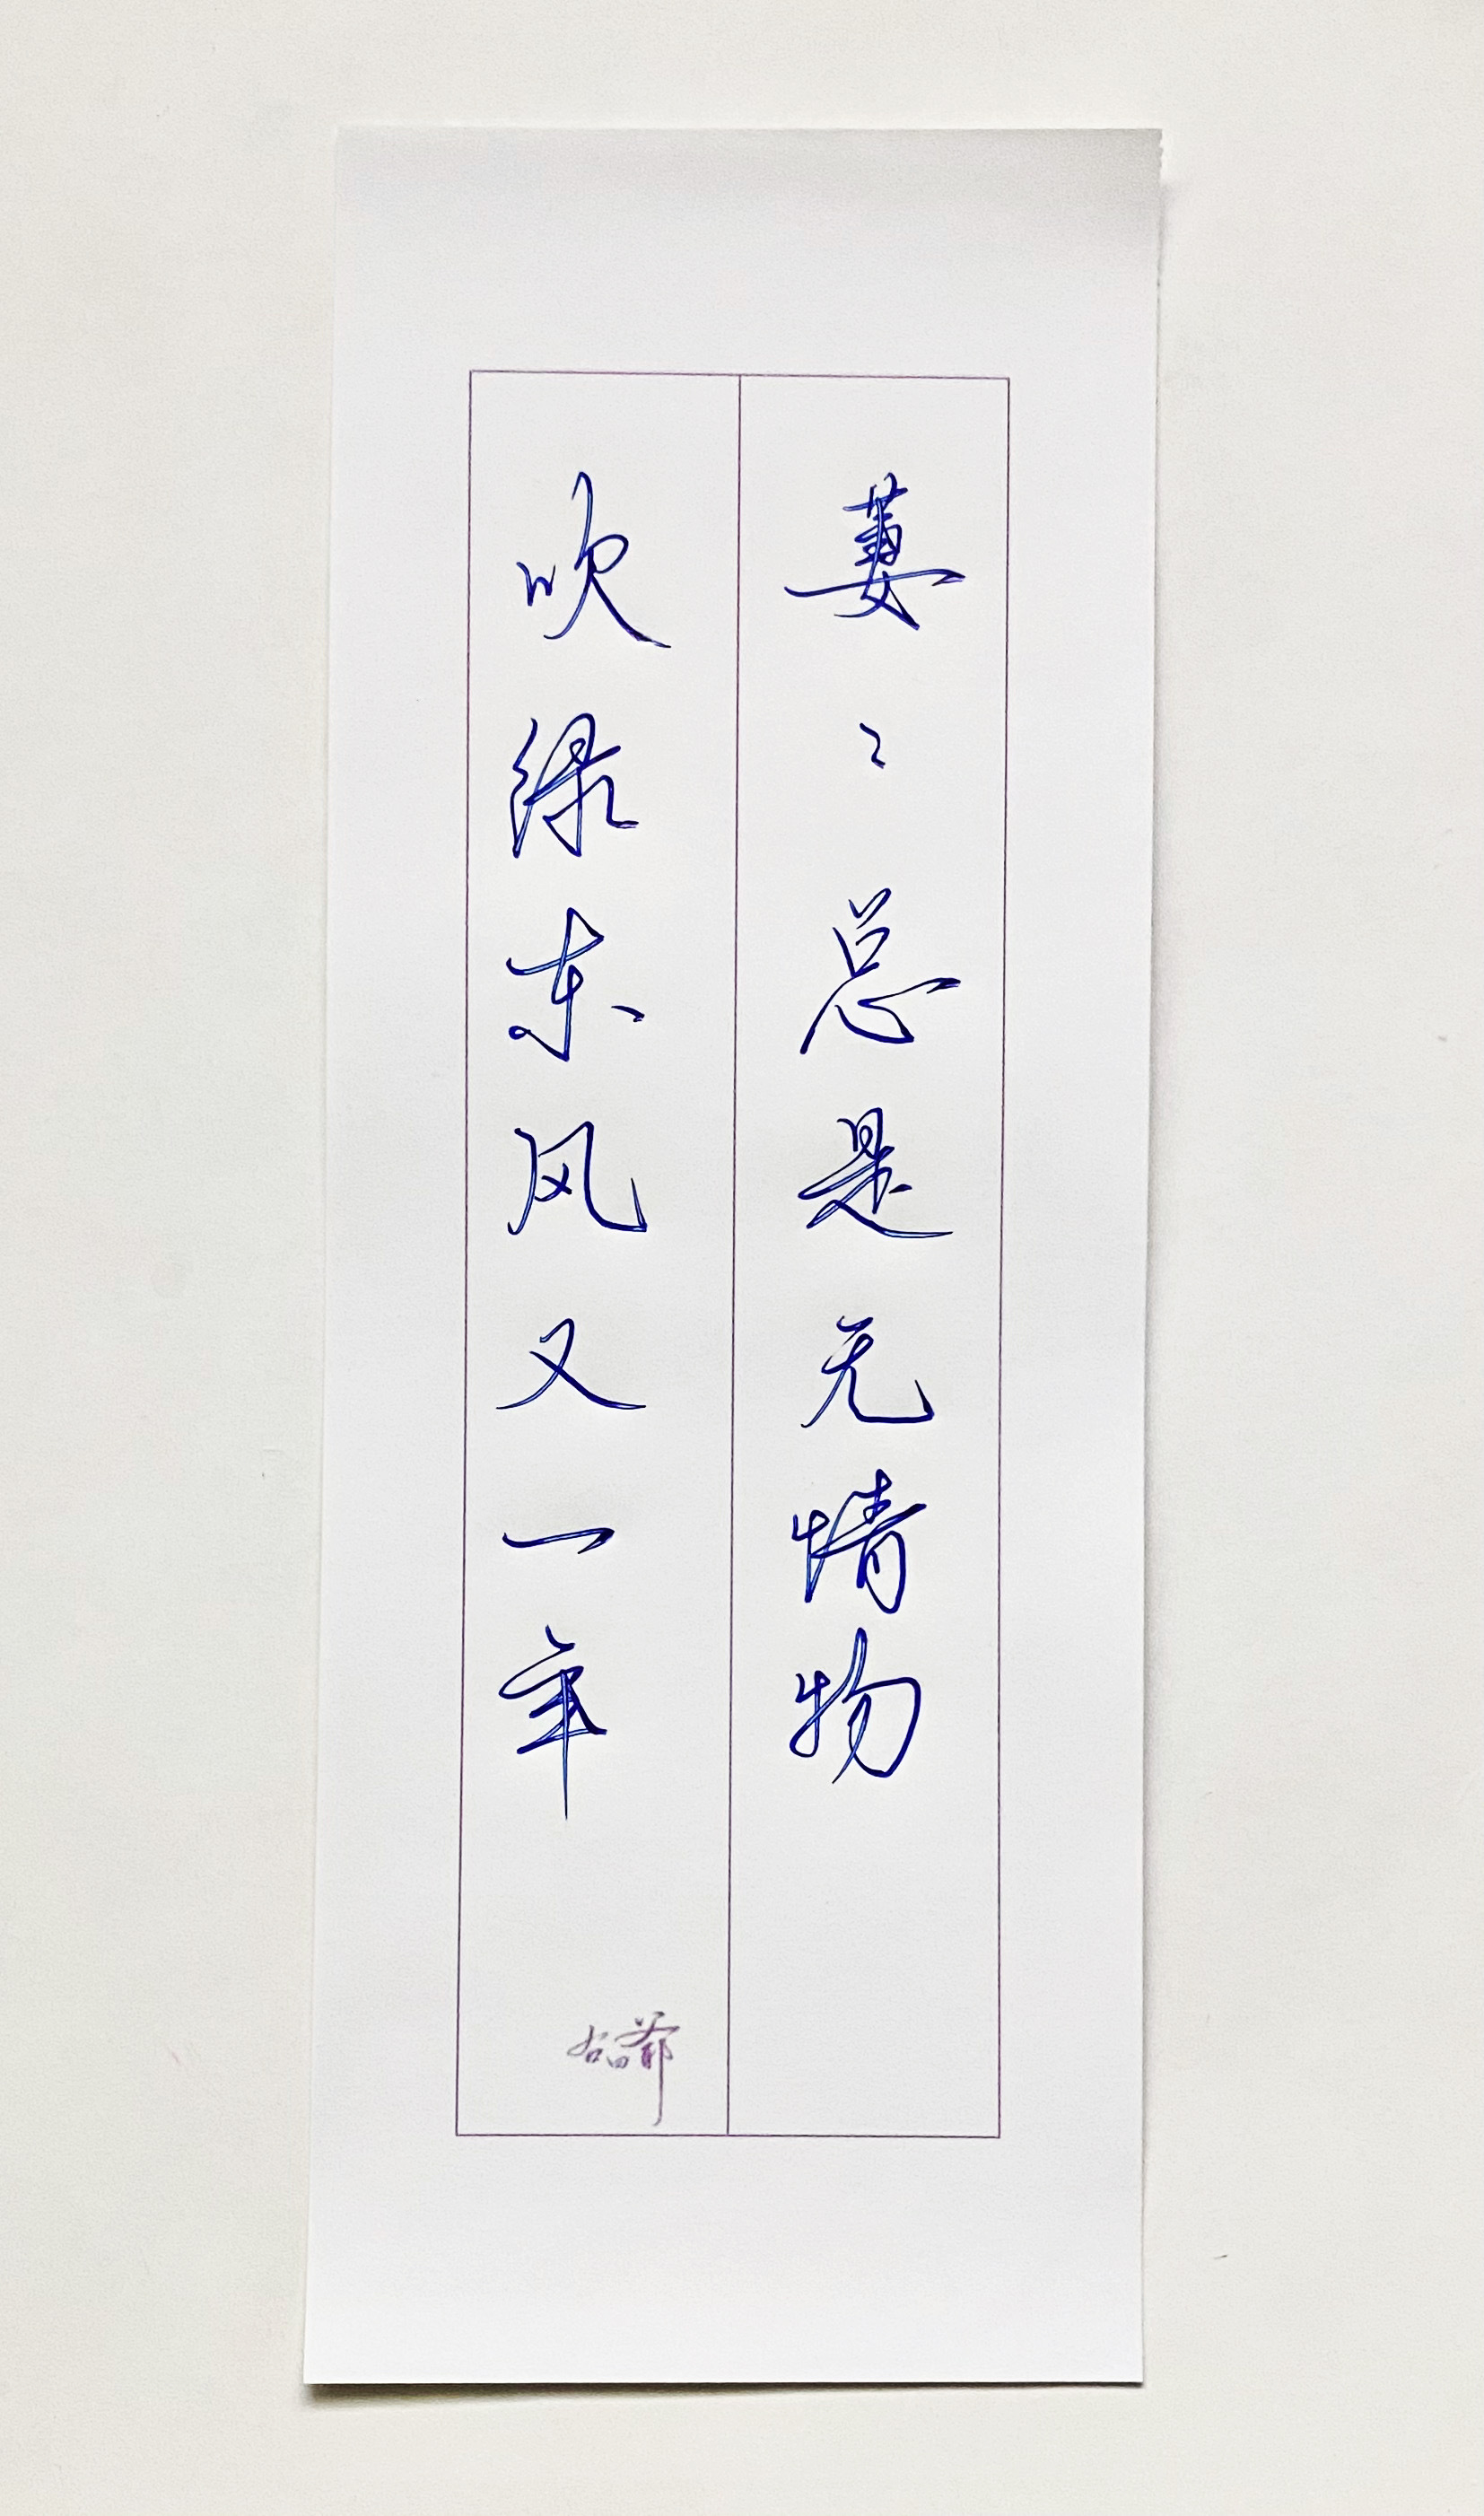 萋々总是无情物
吹绿东风又一年